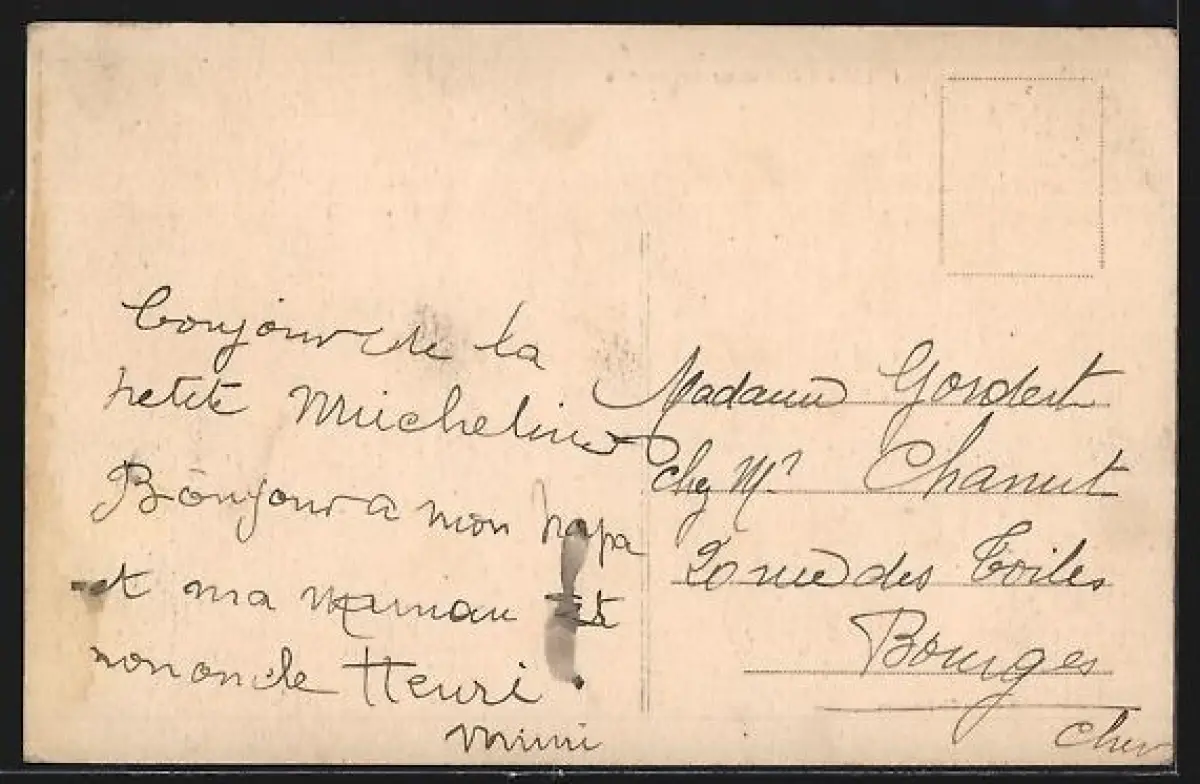 bonjour de la
petite Micheline
Bonjour a mon papa
et ma maman et
mon oncle Henri
mimi
Madame Gordert
chez Mr Chanut
20 rue des Toiles
Bourges
Cher